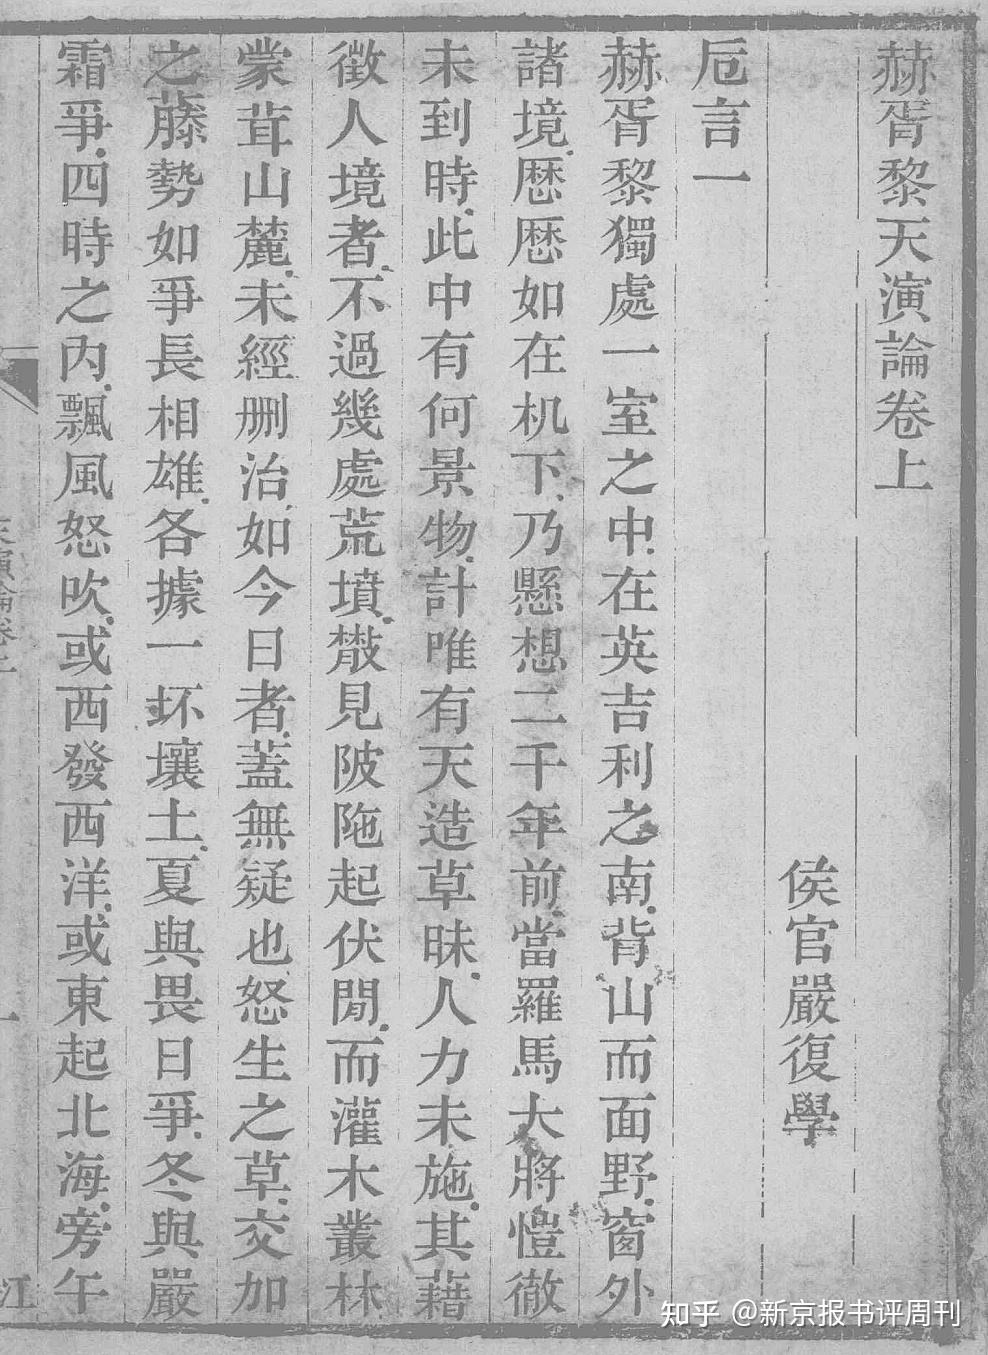 赫胥黎天演論卷上
侯官嚴復學
卮言一
赫胥黎獨處一室之中.在英吉利之南.背山而面野.窗外
諸境.歷歷如在机下.乃懸想二千年前.當羅馬大將愷徹
未到時.此中有何景物.計唯有天造草昧.人力未施.其藉
徵人境者.不過幾處荒墳.散見陂陁起伏間.而灌木叢林
蒙茸山麓.未經刪治如今日者.蓋無疑也怒生之草.交加
之藤勢如爭長相雄.各據一抔壤土.夏與畏日爭.冬與嚴
霜爭.四時之內.飄風怒吹.或西發西洋.或東起北海.旁午
天演論卷上
一
江
知乎 @新京报书评周刊